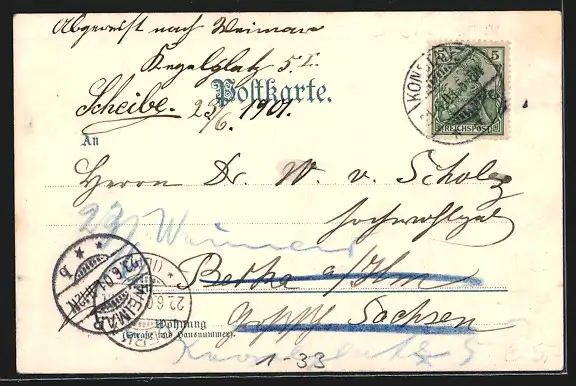 Abgereist nach Weimar
Kegelplatz 5 I.
Scheibe. 23/6. 1901.
Postkarte.
5
REICHSPOST
KONSTANZ
An
Herrn Dr. W. v. Scholz
Hochwohlgeb
23/ Weimar
Berka a/Ilm
Sachsen
WEIMAR
Wohnung
(Straße und Hausnummer)
1-33